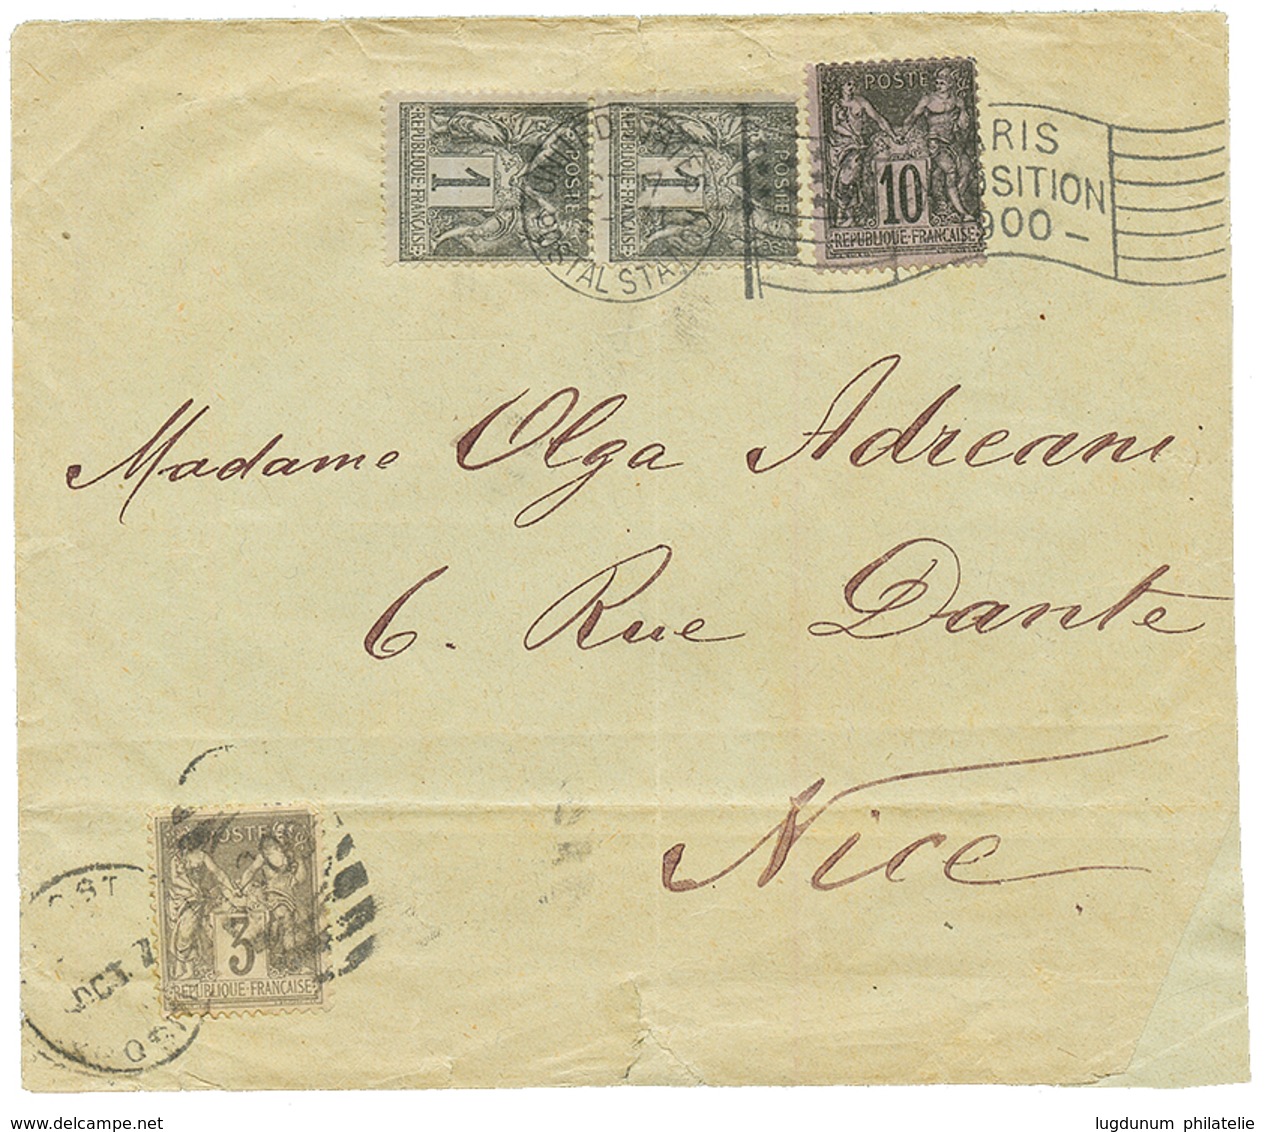 POSTE
10
REPUBLIQUE·FRANÇAISE
POSTE
1
REPUBLIQUE·FRANÇAISE
POSTE
1
REPUBLIQUE·FRANÇAISE
UNITED STATES
POSTAL STATION
ARIS
OSITION
900 –
Madame Olga Adreani
6. Rue Dante
Nice
POSTE
3
REPUBLIQUE·FRANÇAISE
OCT 7
lugdunum philatelie